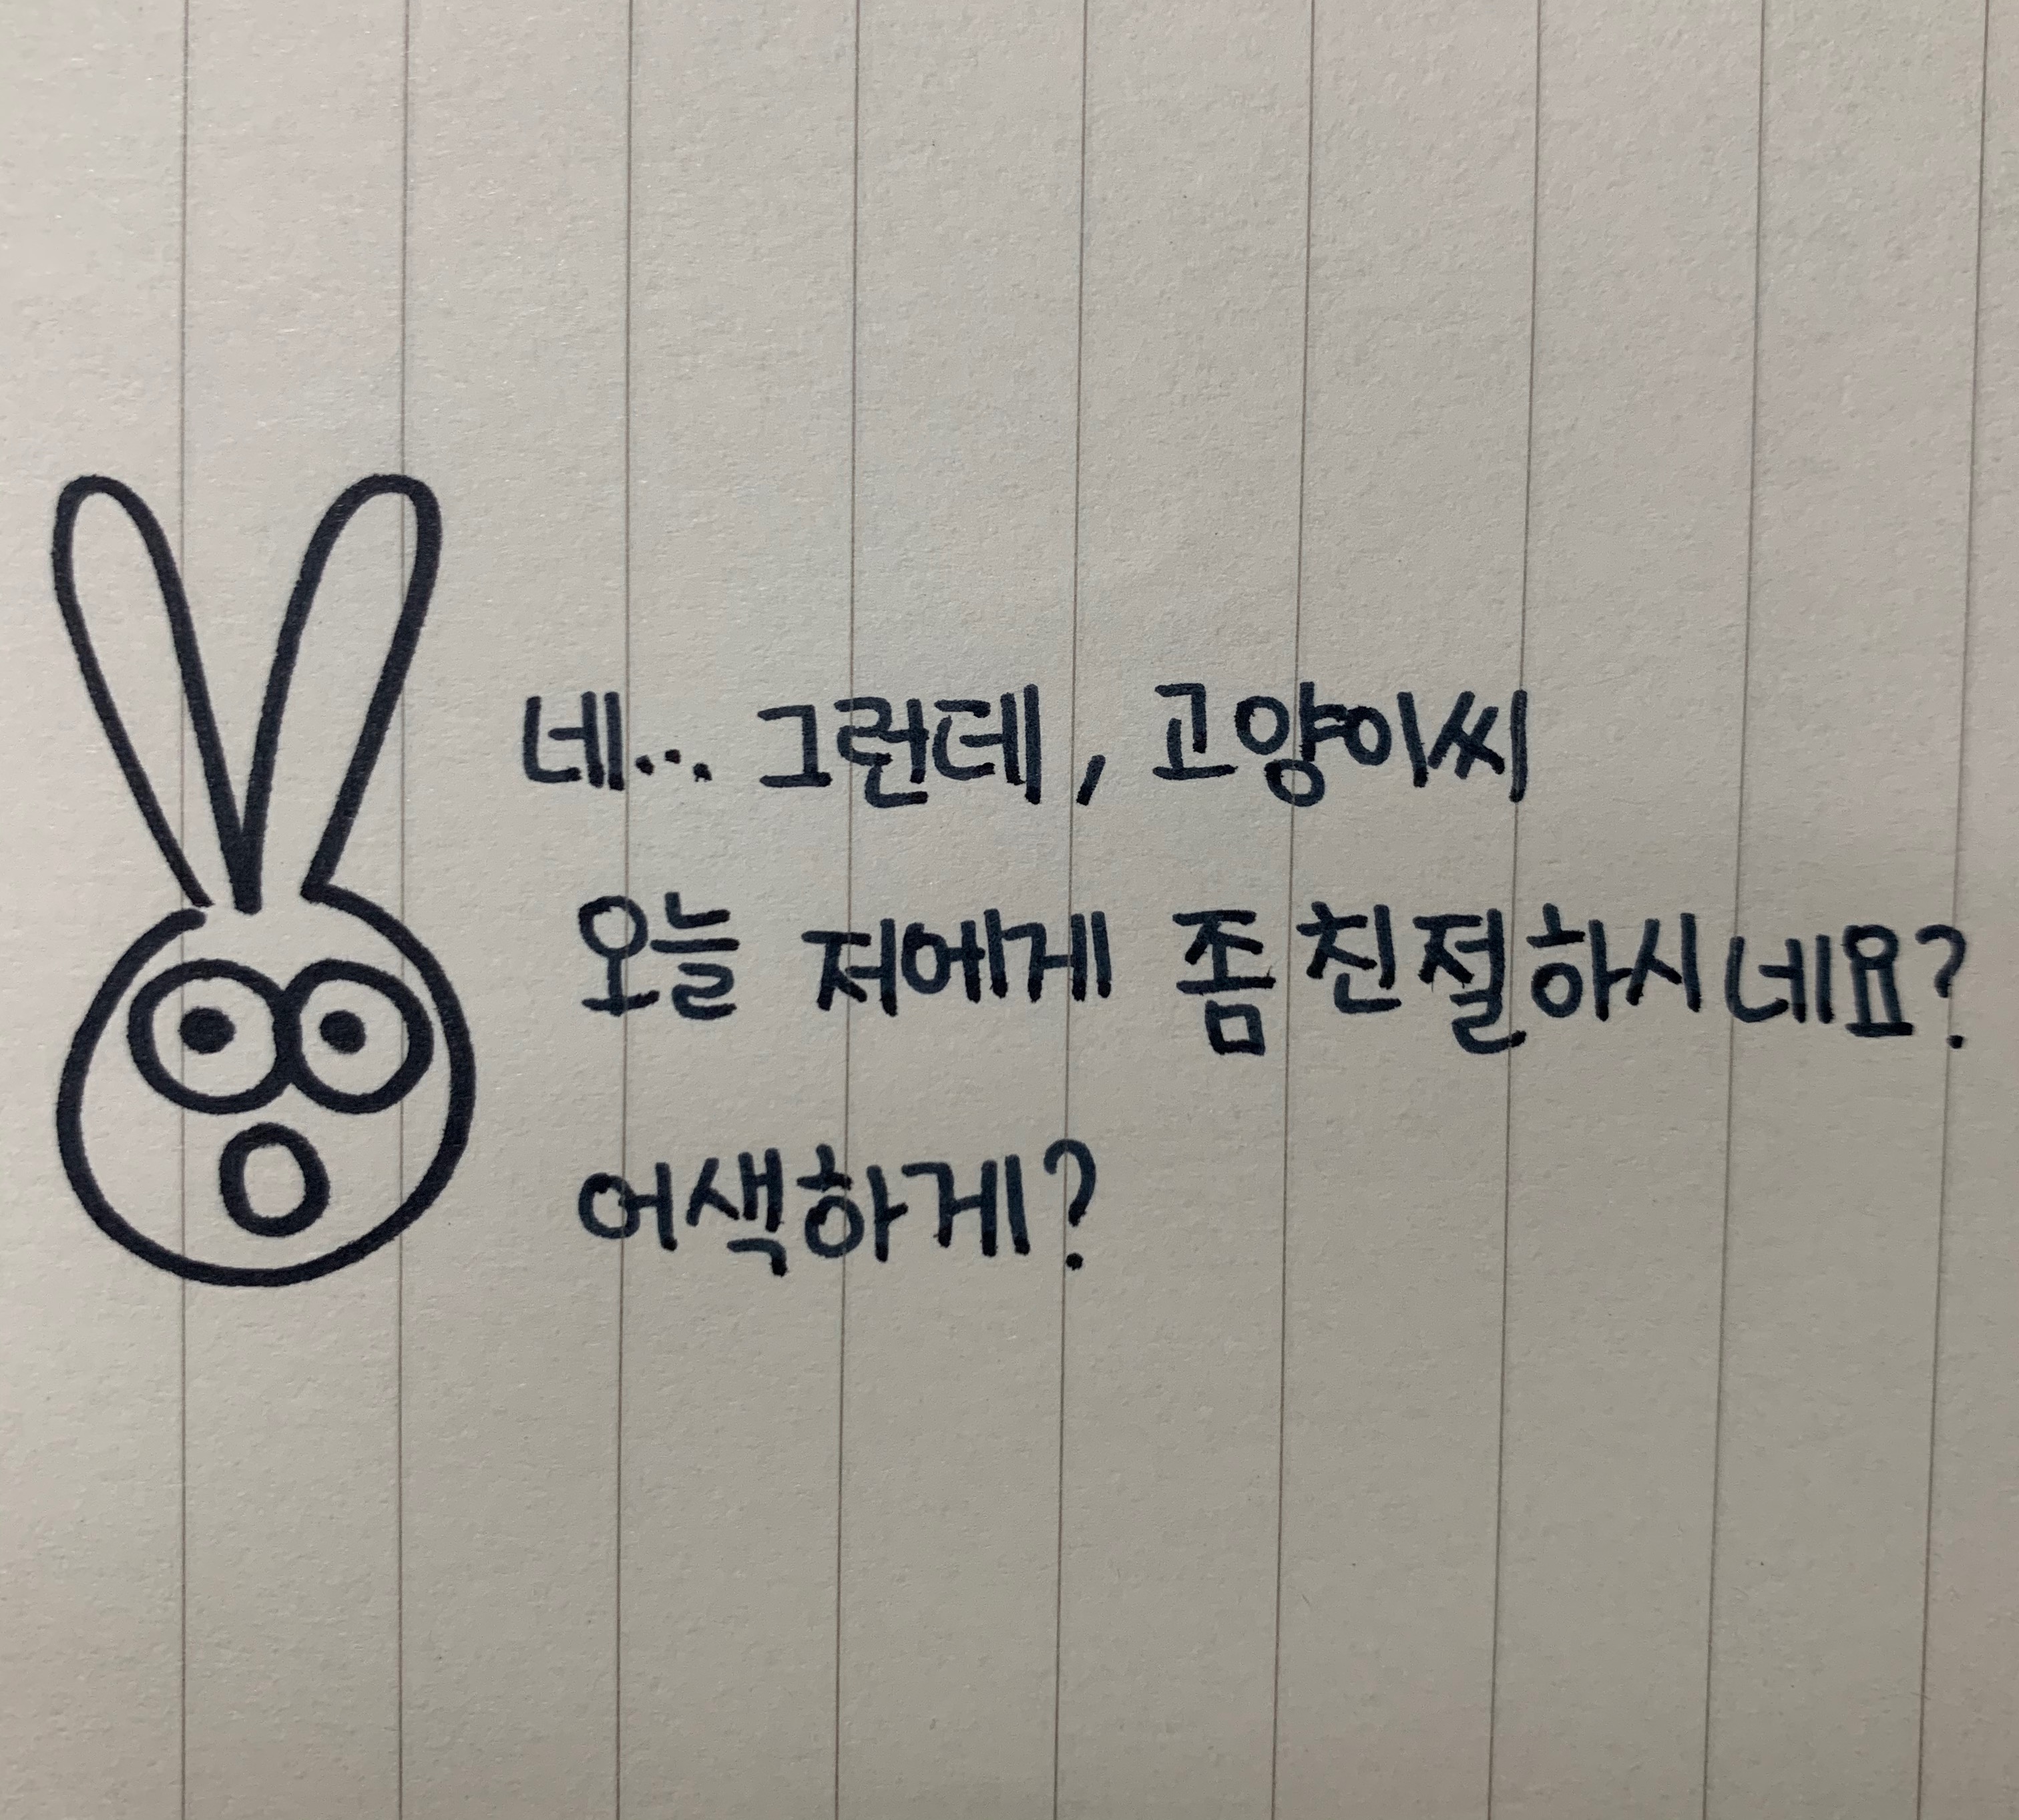 네... 그런데, 고양이씨
오늘 저에게 좀 친절하시네요?
어색하게?